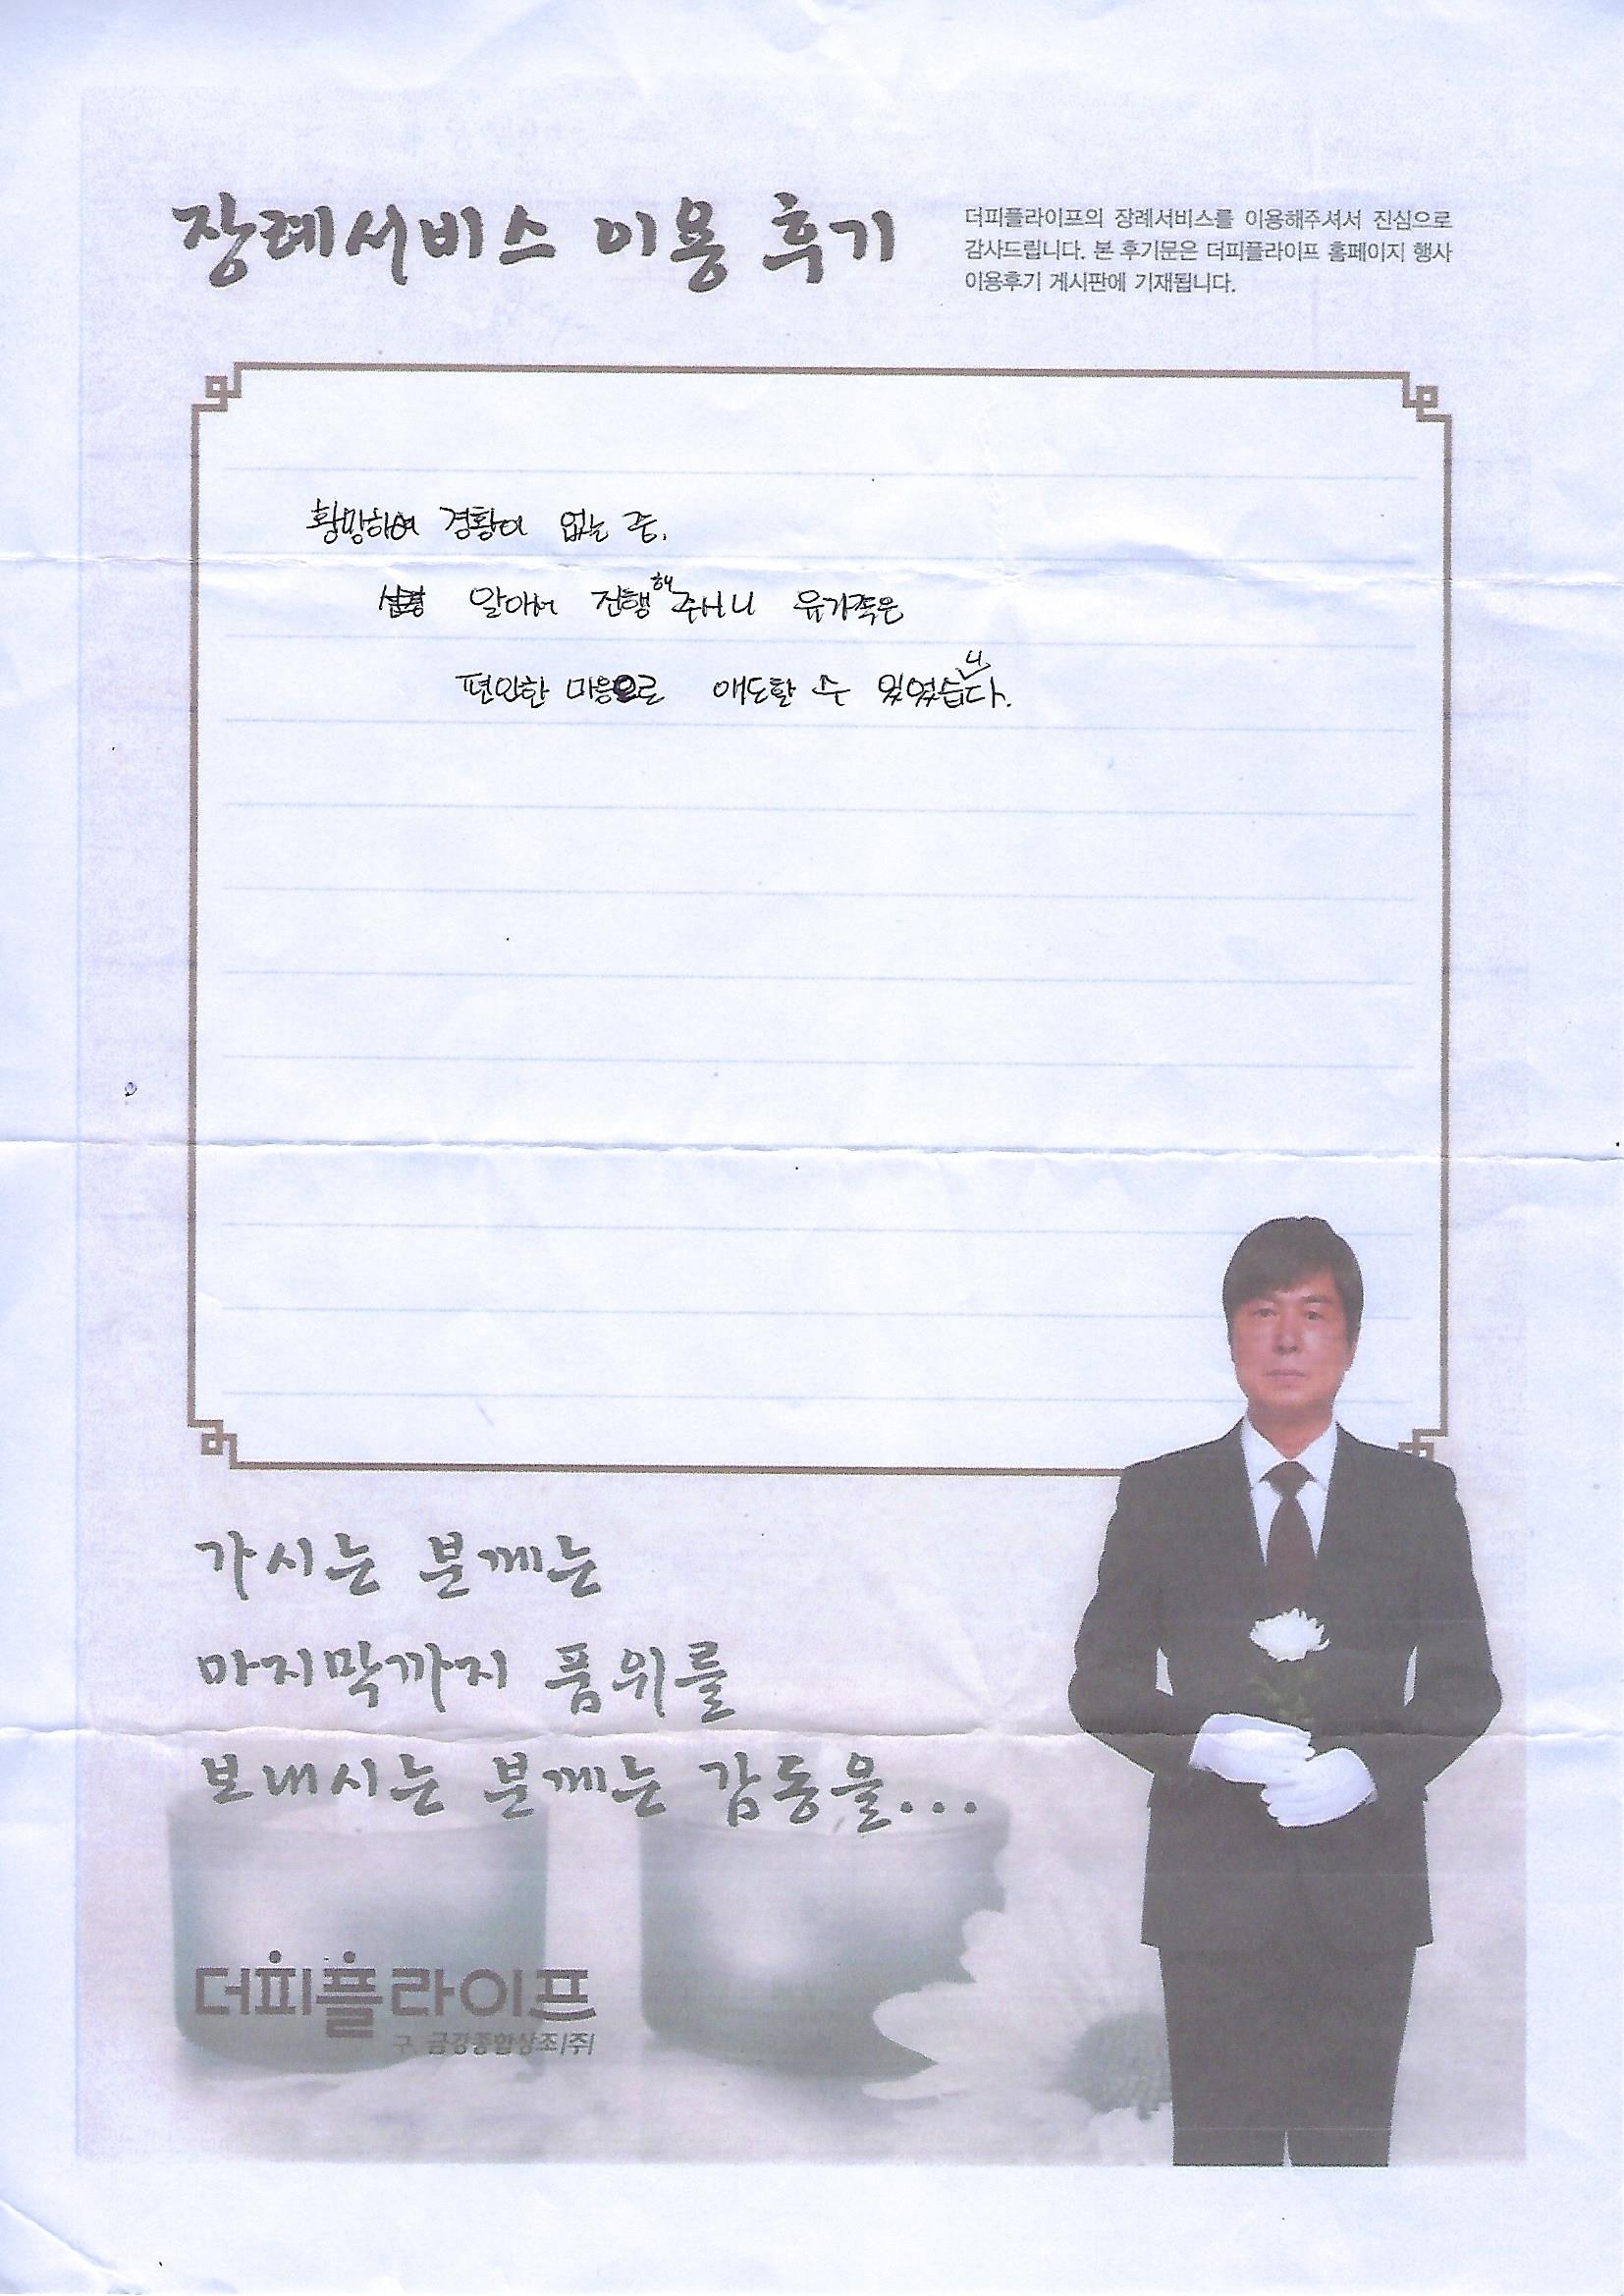 장례서비스 이용 후기
더피플라이프의 장례서비스를 이용해주셔서 진심으로
감사드립니다. 본 후기문은 더피플라이프 홈페이지 행사
이용후기 게시판에 기재됩니다.
황망하여 경황이 없는 중,
알아서 진행해주시니 유가족은
편안한 마음으로 애도할 수 있었습니다.
가시는 분께는
마지막까지 품위를
보내시는 분께는 감동을...
더피플라이프
구. 금강종합상조(주)